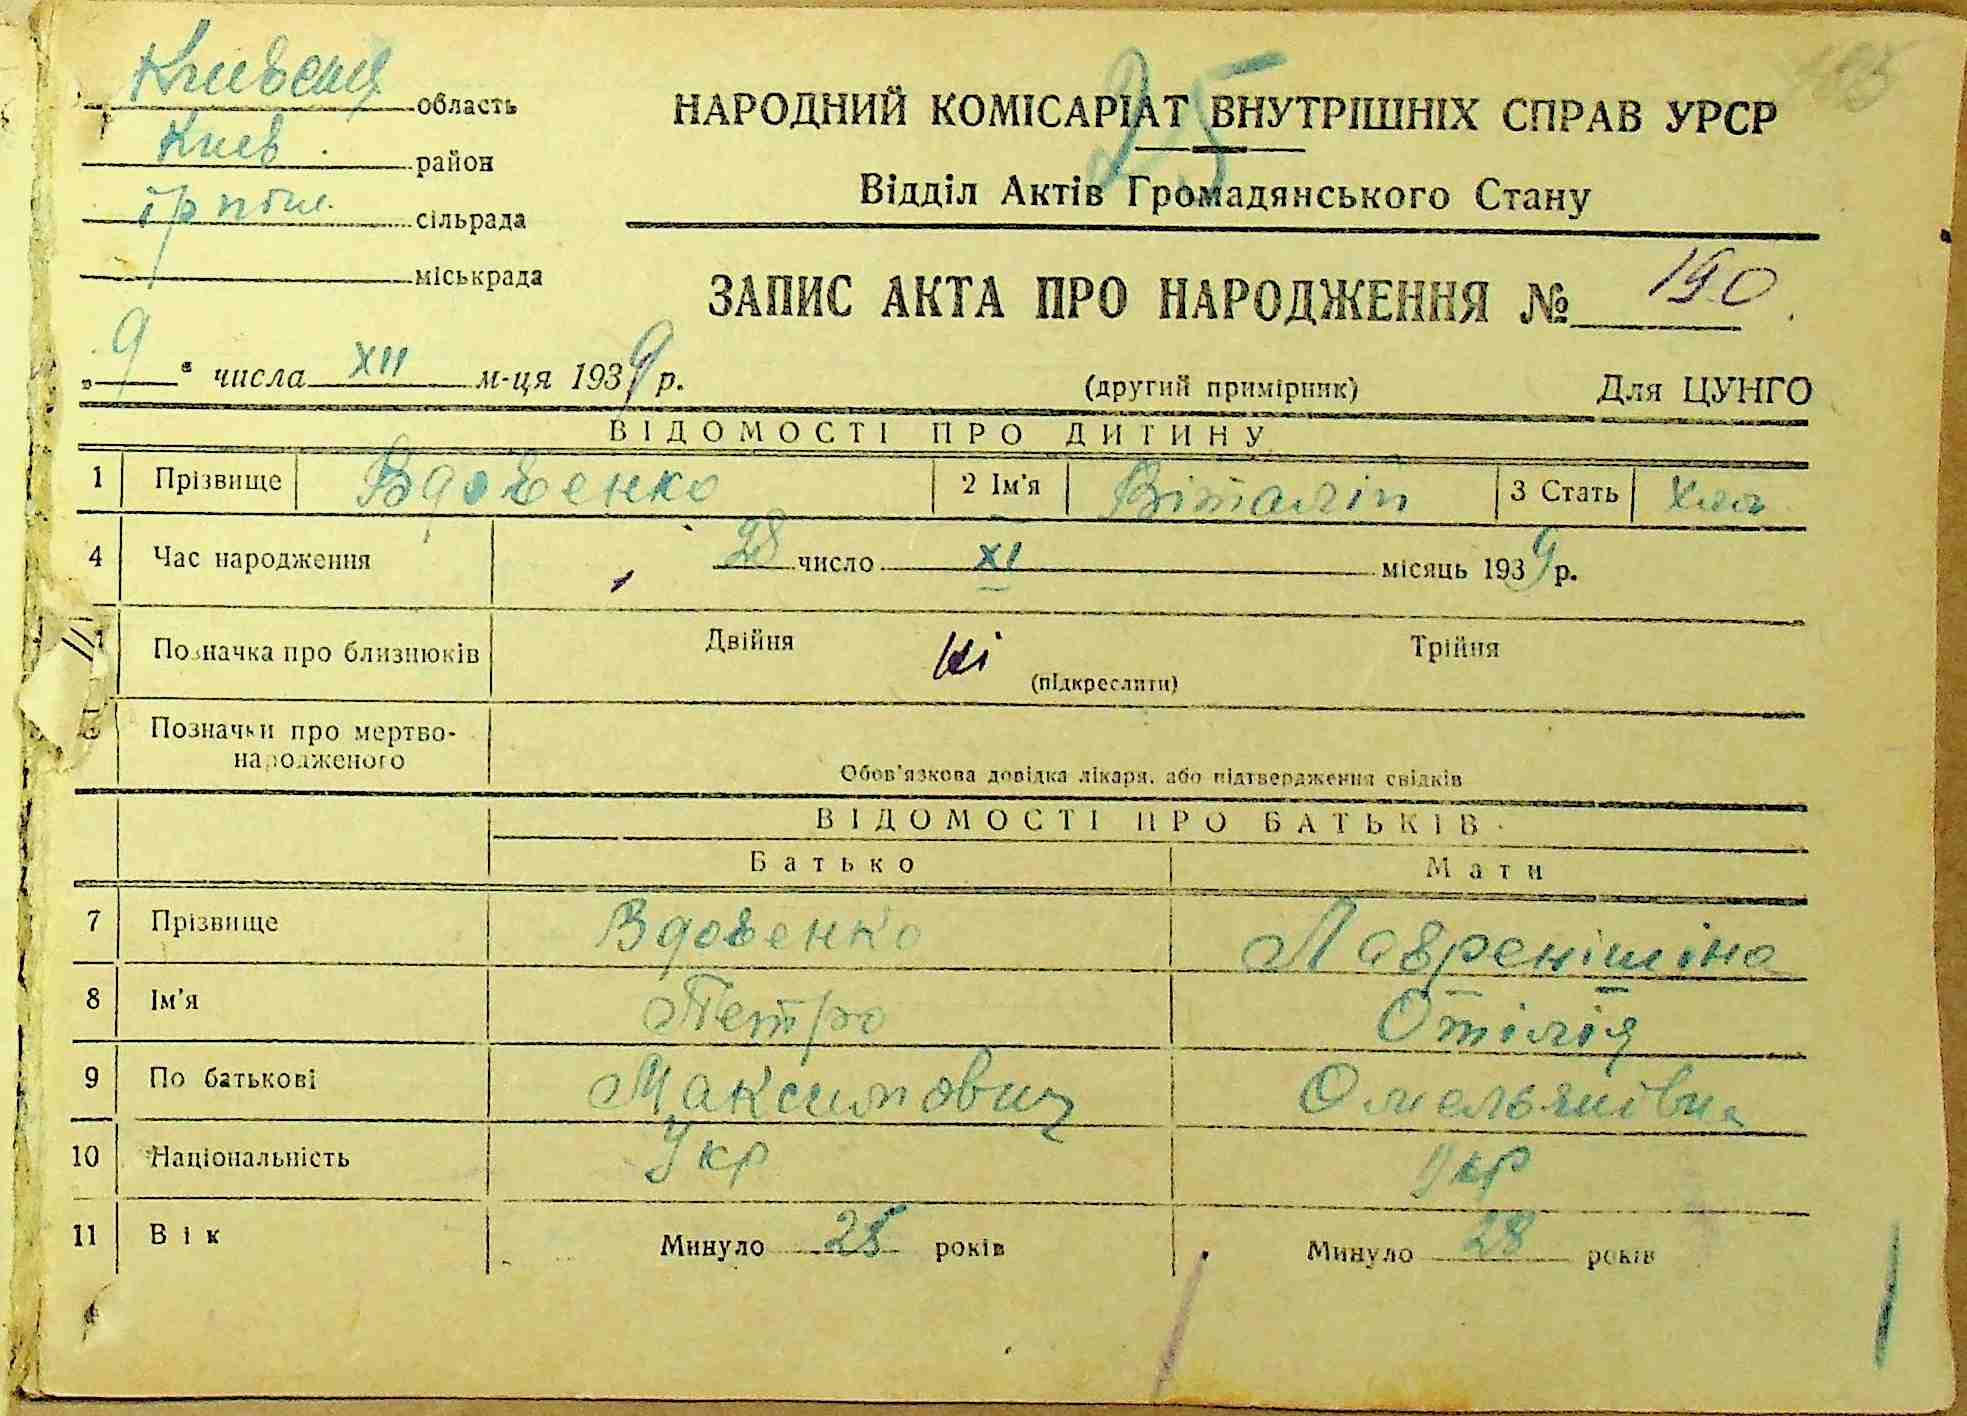 Київська область
Киев район
Ірпін. сільрада
міськрада
25
НАРОДНИЙ КОМІСАРІАТ ВНУТРІШНІХ СПРАВ УРСР
Відділ Актів Громадянського Стану
ЗАПИС АКТА ПРО НАРОДЖЕННЯ № 190
„9" числа XII м-ця 1939 р.
(другий примірник)
Для ЦУНГО
ВІДОМОСТІ ПРО ДИТИНУ
1 Прізвище Вдовенко 2 Ім'я Віталій 3 Стать Хлоп
4 Час народження 28 число XI місяць 1939 р.
Позначка про близнюків Двійня Ні Трійня
(підкреслити)
Позначки про мертво-
народженого
Обов'язкова довідка лікаря, або підтвердження свідків
ВІДОМОСТІ ПРО БАТЬКІВ
Батько Мати
7 Прізвище Вдовенко Лаврентіна
8 Ім'я Петро Отілія
9 По батькові Максимович Омельянівна
10 Національність Укр Укр
11 Вік Минуло 25 років Минуло 28 років